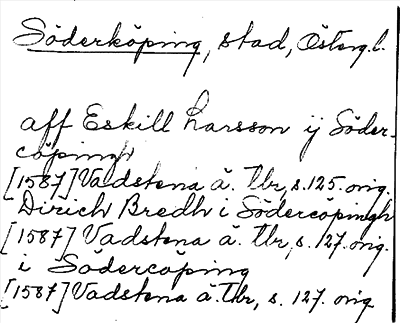 Söderköping, stad, Österg. l.
aff Eskill Larsson ij Söder-
cöpingh
[1587] Vadstena ä. Tbr, s. 125. orig.
Dirich Bredh i Södercöpingh
[1587] Vadstena ä. Tbr, s. 127. orig.
i Södercöping
[1587] Vadstena ä. Tbr, s. 127. orig.